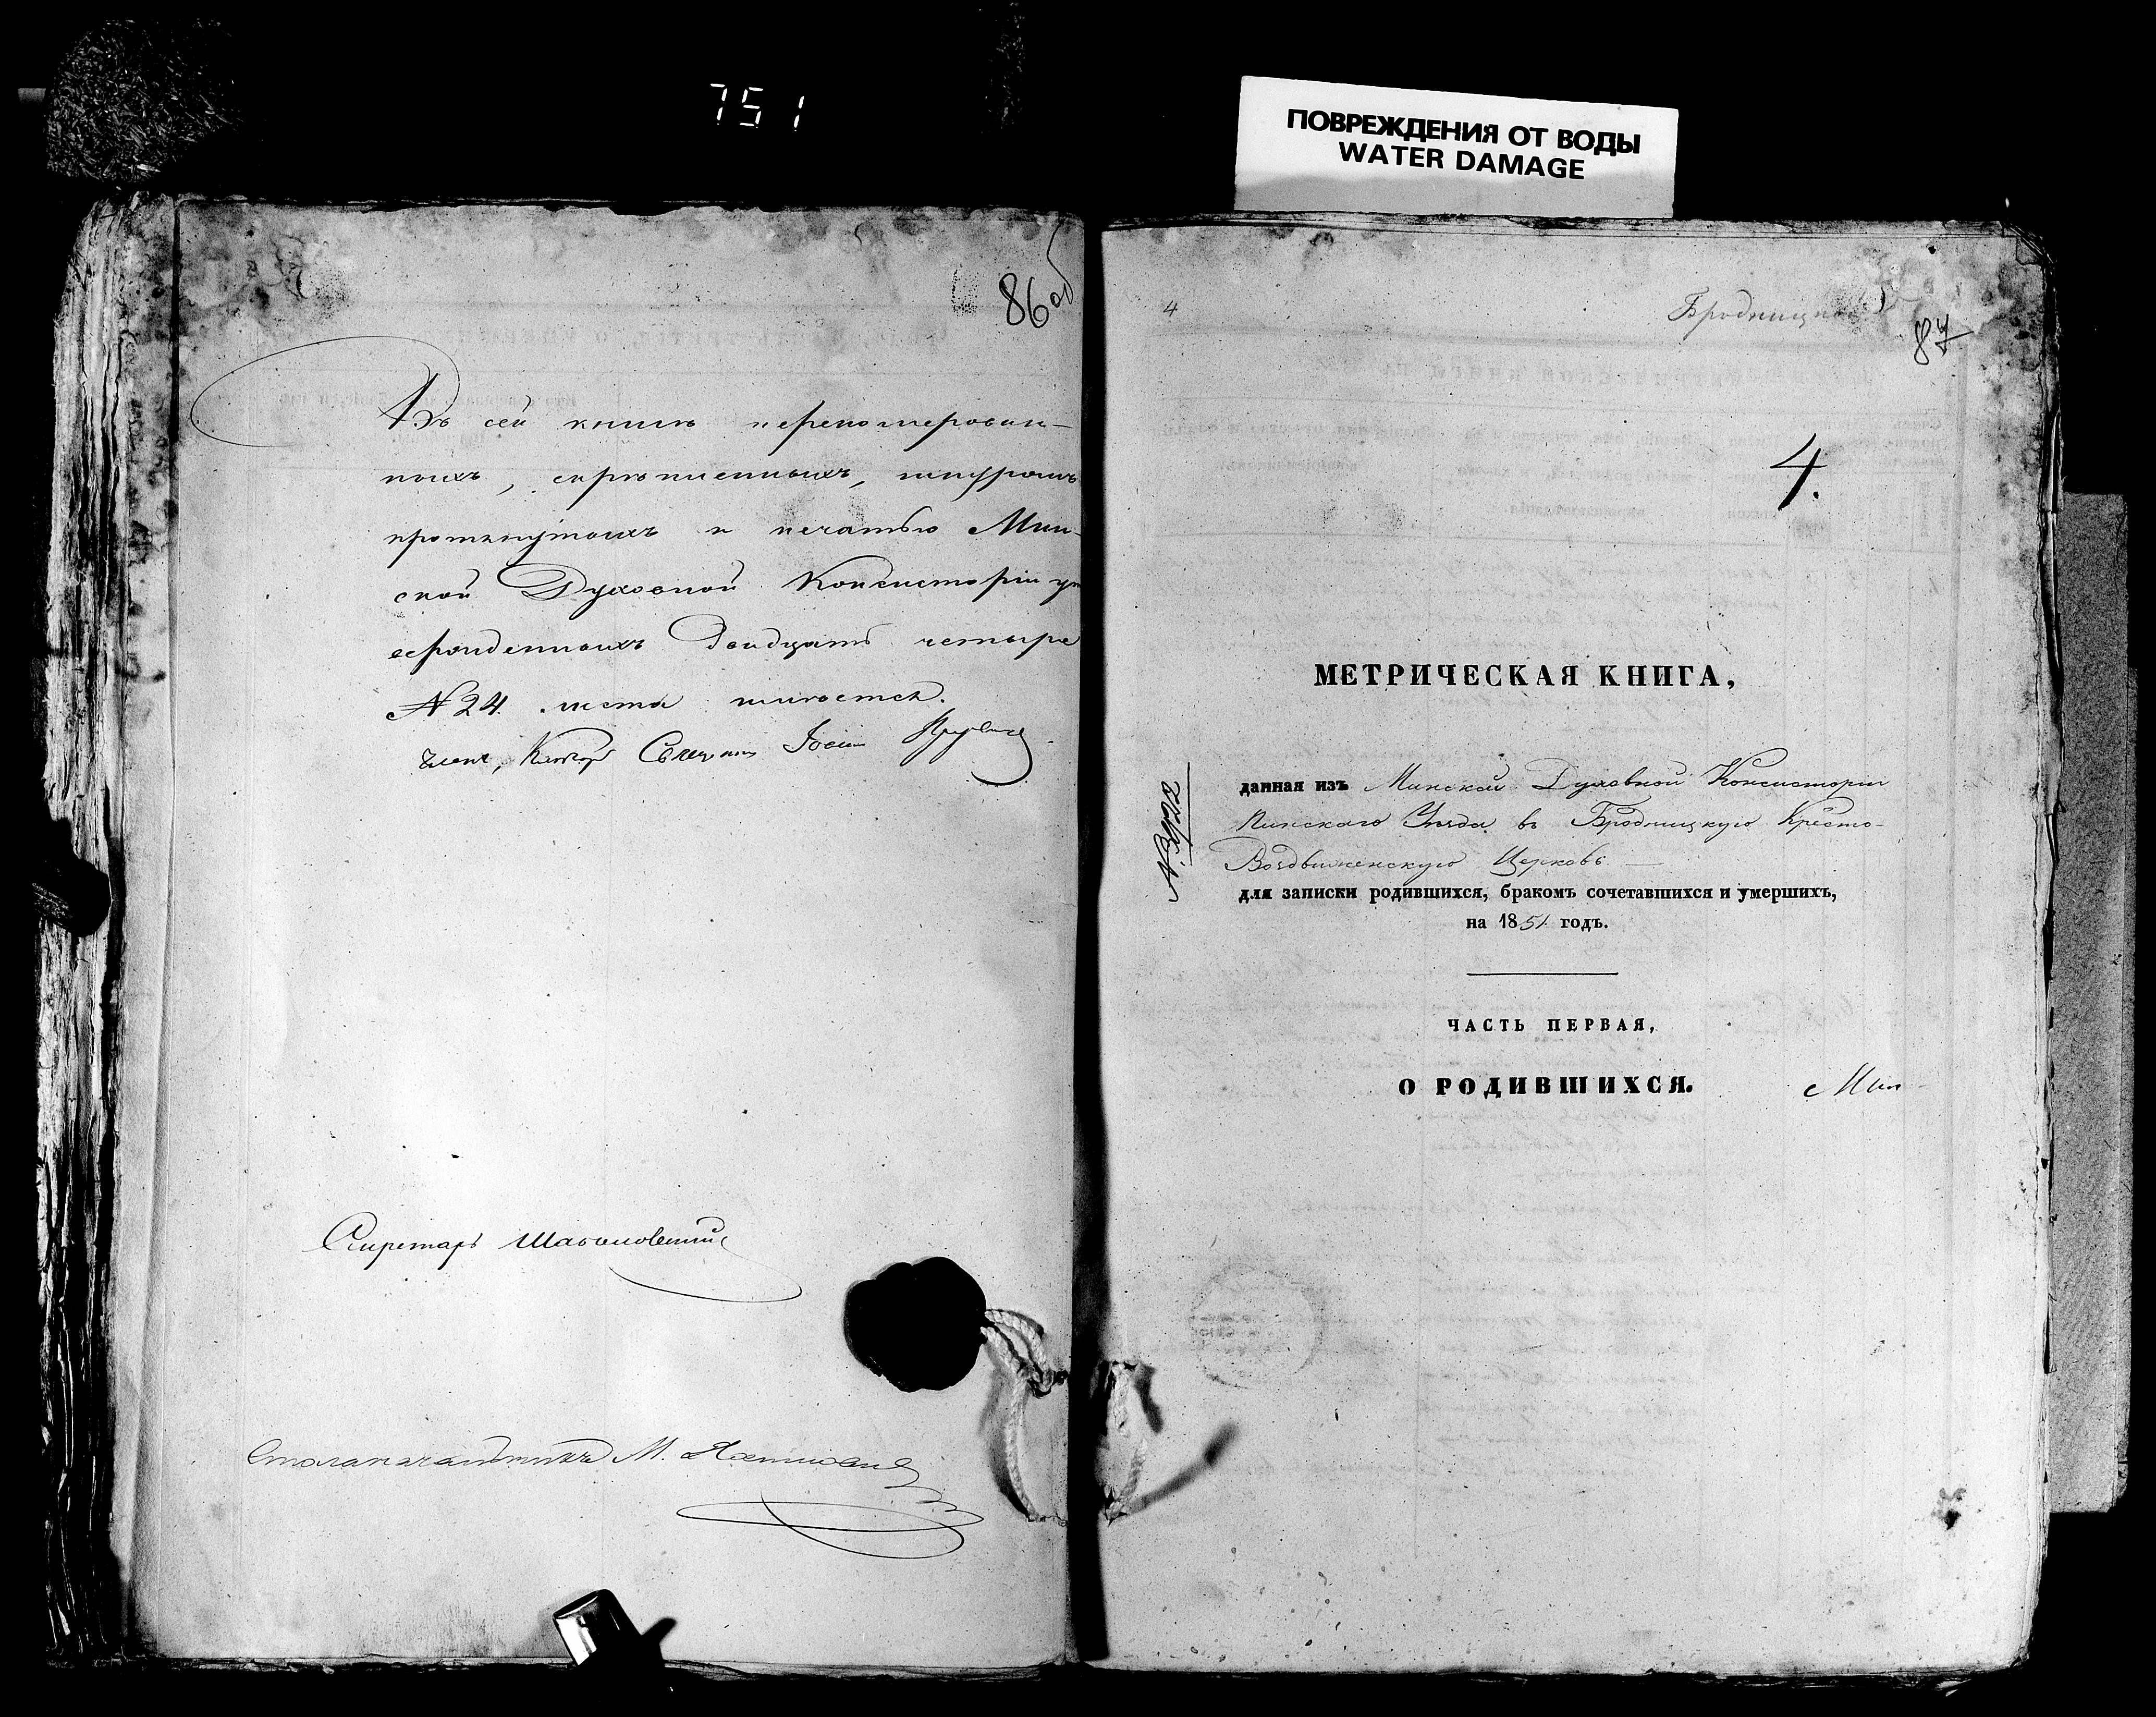 751
ПОВРЕЖДЕНИЯ ОТ ВОДЫ
WATER DAMAGE
86 об
Въ сей книгѣ перенумерован-
ныхъ, скрѣпленныхъ, шнуромъ
протянутыхъ и печатью Мин-
ской Духовной Консисторіи ут
вержденныхъ двадцать четыре
№ 24 листа имѣется.
Членъ, Іосифъ
Секретарь
Столоначальникъ М.
4
87
4.
МЕТРИЧЕСКАЯ КНИГА,
данная изъ Минской Духовной Консисторіи
Пинскаго Уѣзда въ Бродницкую Кресто-
Воздвиженскую Церковь
для записки родившихся, бракомъ сочетавшихся и умершихъ,
на 1851 годъ.
ЧАСТЬ ПЕРВАЯ,
О РОДИВШИХСЯ.
Мин-